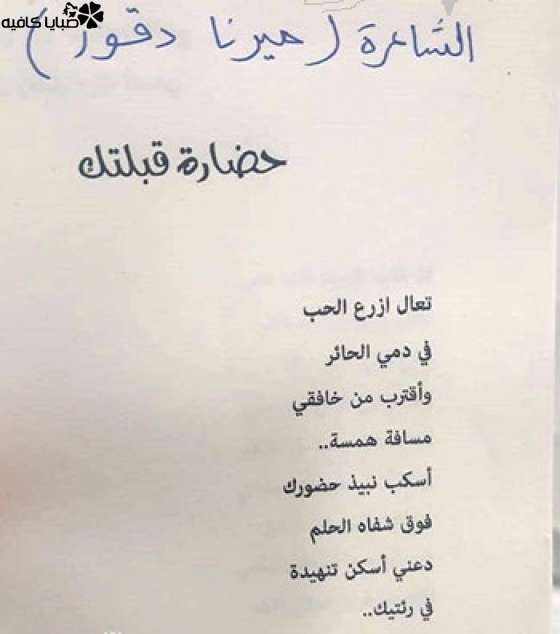 صبايا كافيه
الشاعرة (ميرنا دقور)
حضارة قبلتك
تعال ازرع الحب
في دمي الحائر
وأقترب من خافقي
مسافة همسة..
أسكب نبيذ حضورك
فوق شفاه الحلم
دعني أسكن تنهيدة
في رئتيك..